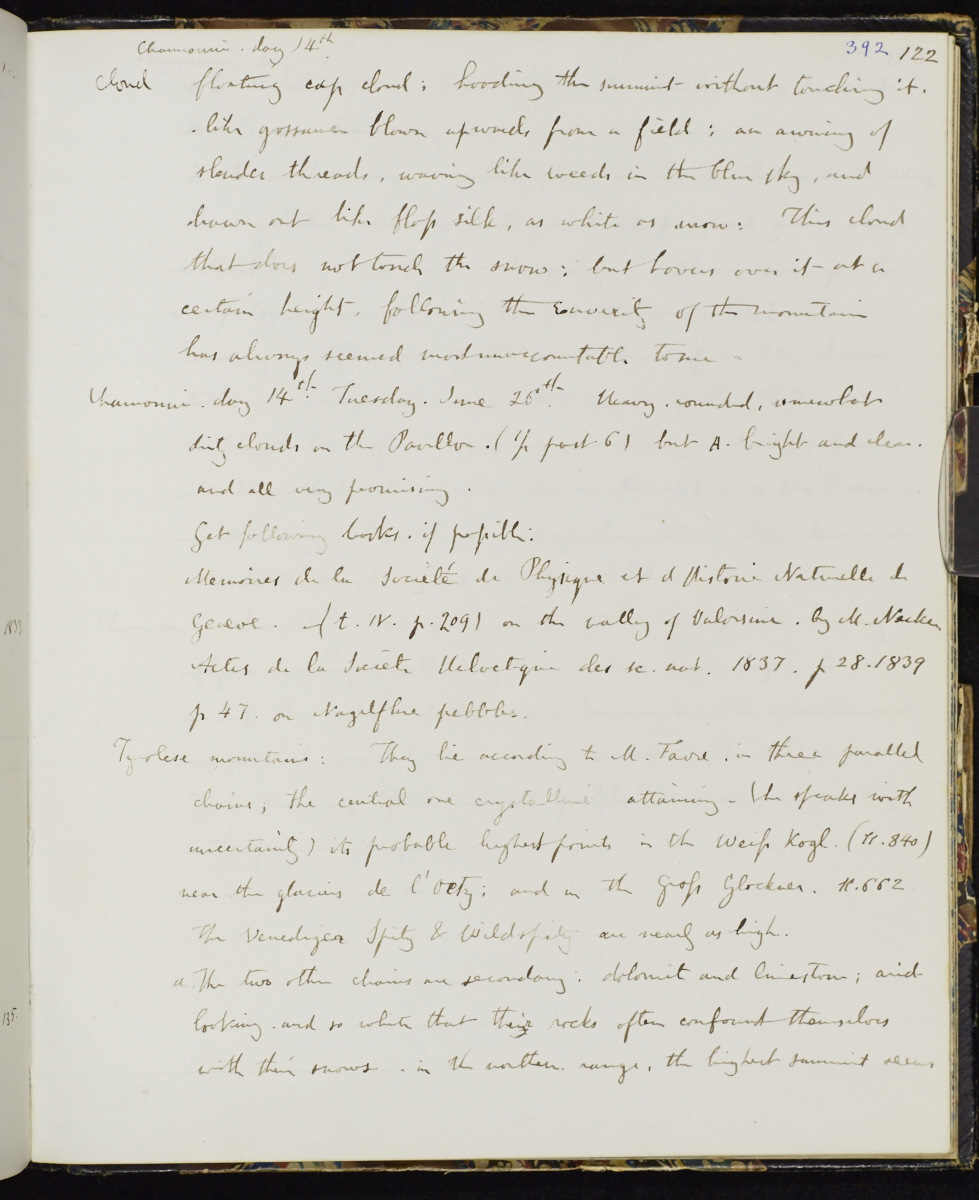 Chamouni. day 14th
392 122
Cloud floating cap cloud; hooding the summit without touching it.
like gossamer blown upwards from a field; an awning of
slender threads, waving like weeds in the blue sky, and
drawn out like floss silk, as white as snow: This cloud
that does not touch the snow; but hovers over it at a
certain height. following the convexity of the mountain
has always seemed most unaccountable to me
Chamouni. day 14th. Tuesday. June 26th. Heavy. rounded, somewhat
dirty clouds on the Pavillon. (1/2 past 6) but A. bright and clear.
and all very promising.
Get following books. if possible:
Memoires de la Société de Physique et d Histoire Naturelle de
Geneve. (t. IV. p. 209) on the valley of Valorsine. by M. Necker
Actes de la Société Helvetique des sc. nat. 1837. p 28. 1839
p 47. on Nagelflue pebbles.
Tyrolese mountains: They lie according to M. Favre. in three parallel
chains, the central one crystalline attaining (he speaks with
uncertainty) its probable highest points in the Weiss Kogl. (11.840)
near the glaciers de l'Oetz; and in the Gross Glockner. 11.662
The Venediger Spitz & Wildspitz are nearly as high.
a. The two other chains are secondary: dolomit and limestone; arid
looking. and so white that their rocks often confound themselves
with their snows. in the northern range, the highest summit seems
1839
135.